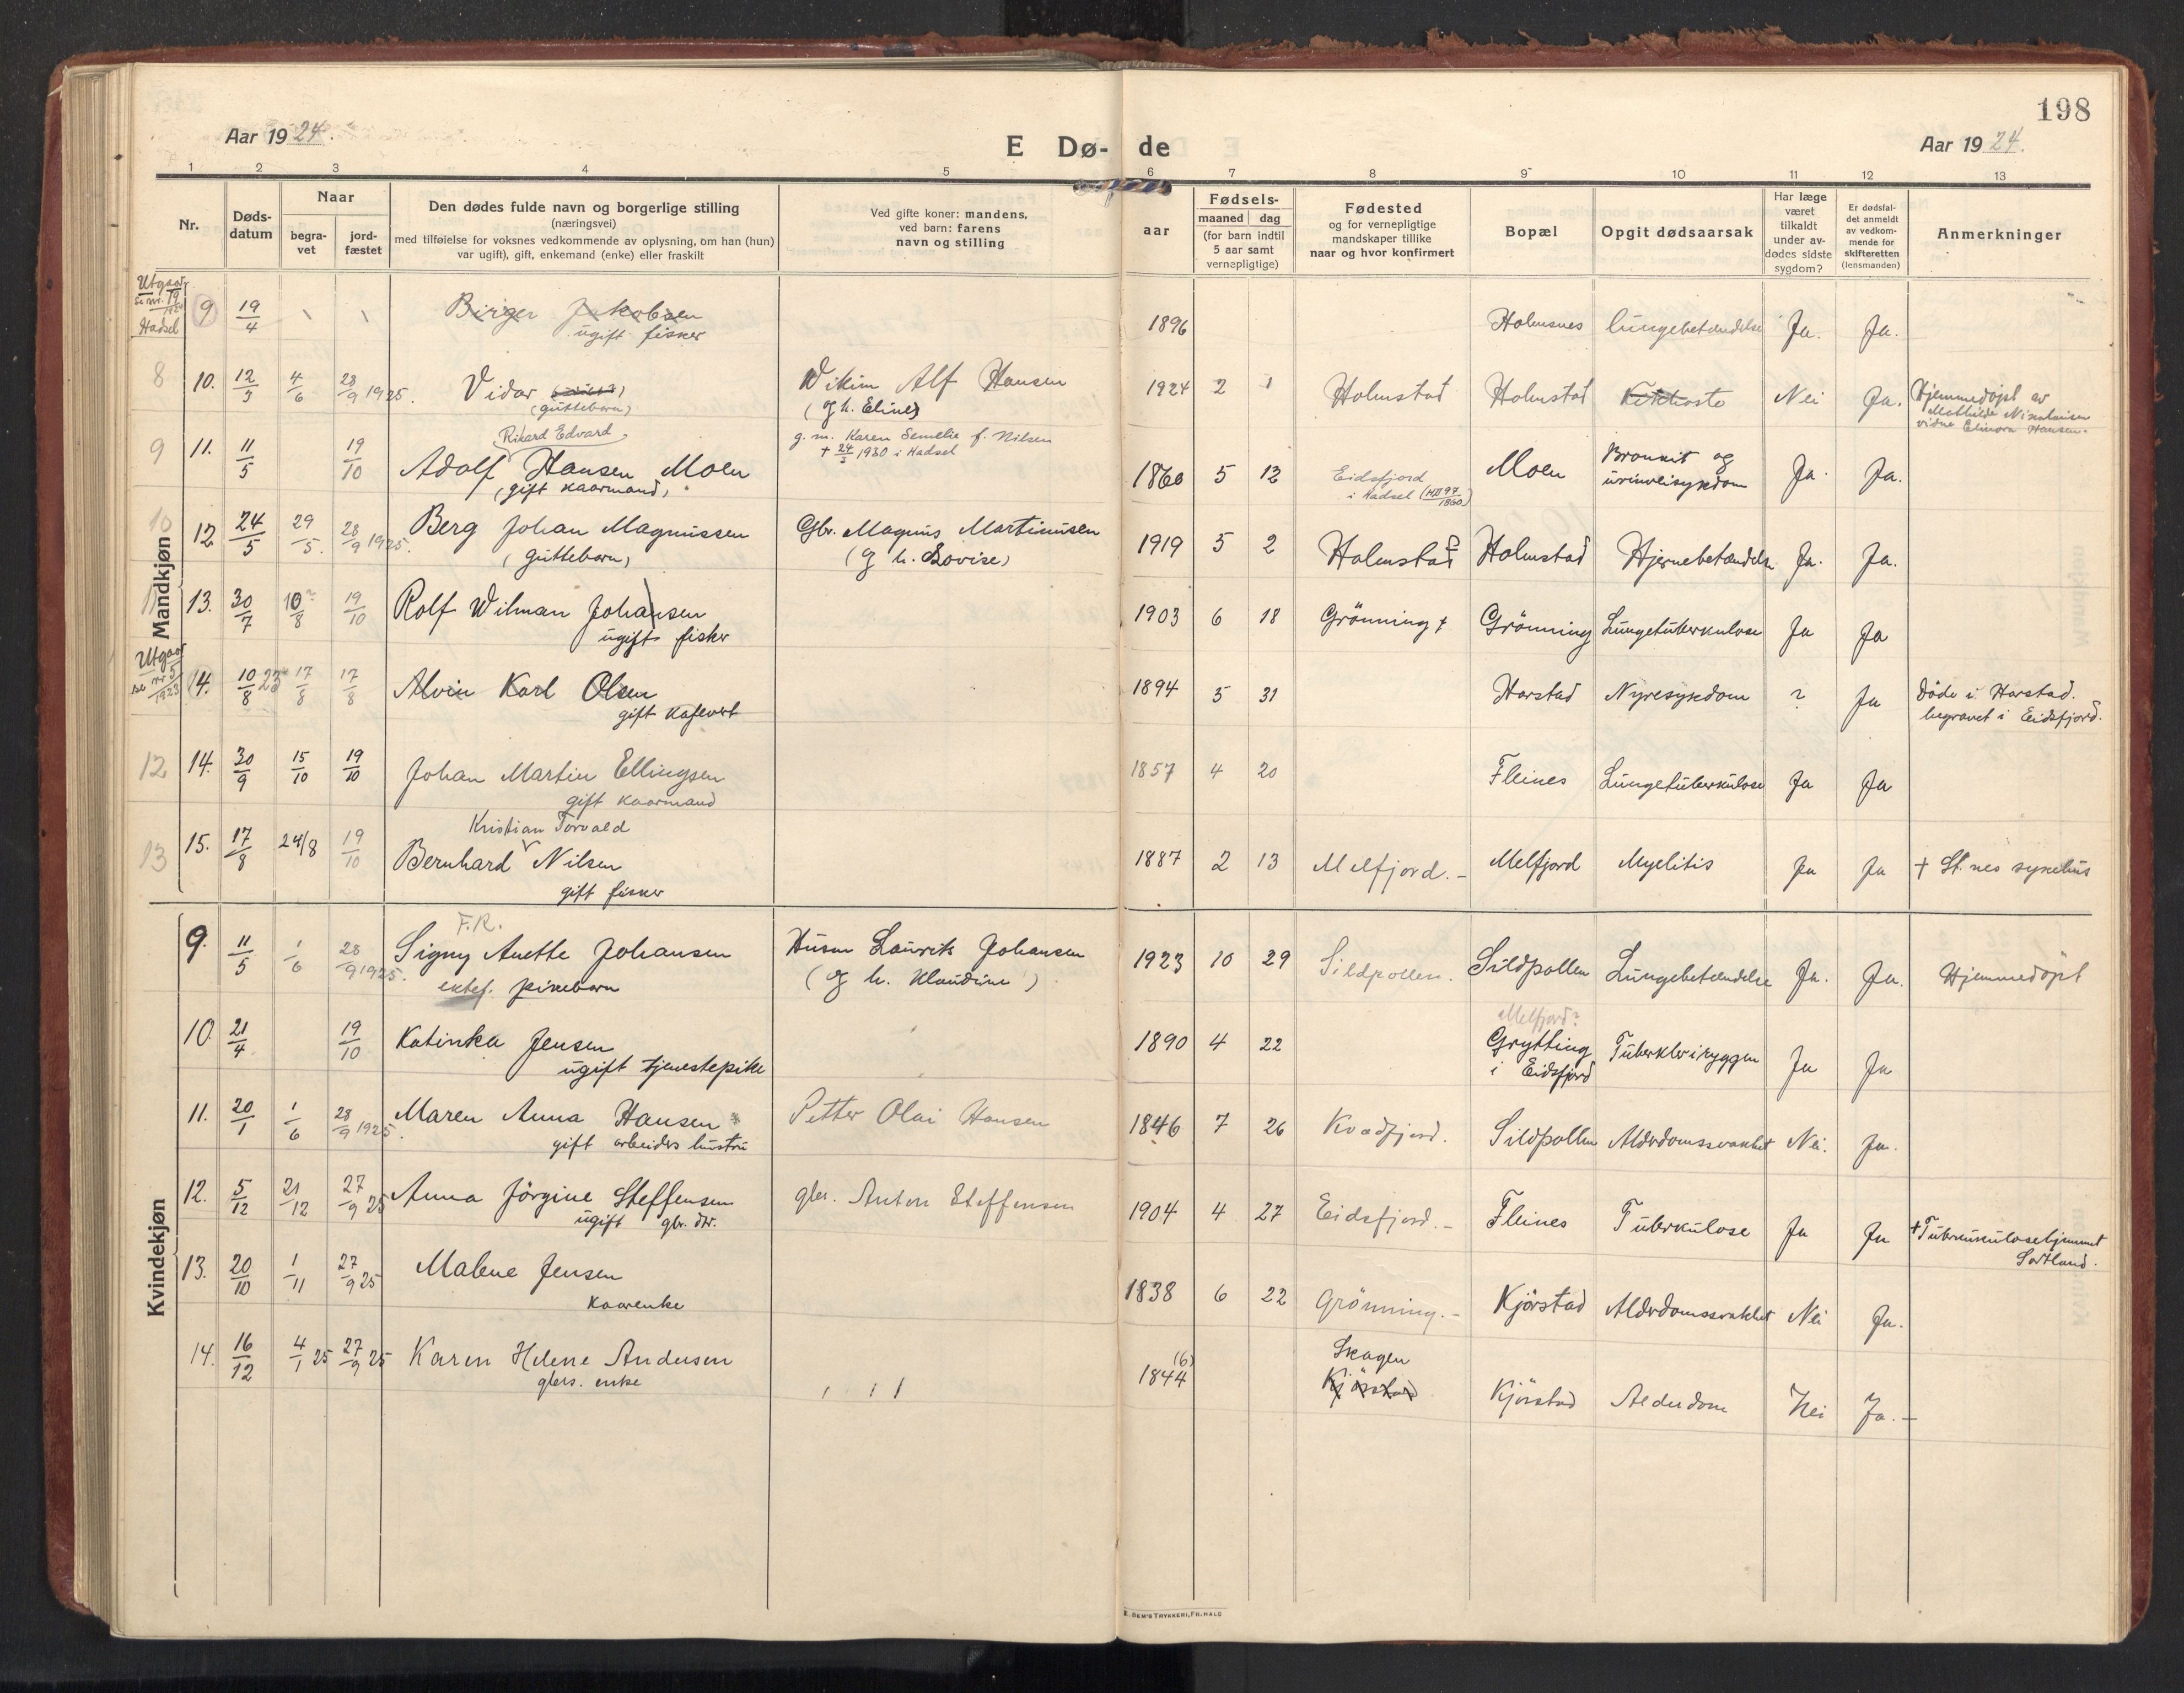 198
Aar 1924.
E Dø- de
Aar 1924.
1 2 3 4 5 6 7 8 9 10 11 12 13
Nr.
Døds-
datum
Naar
begra-
vet
jord-
fæstet
Den dødes fulde navn og borgerlige stilling
(næringsvei)
med tilføielse for voksnes vedkommende av oplysning, om han (hun)
var ugift), gift, enkemand (enke) eller fraskilt
Ved gifte koner: mandens,
ved barn: farens
navn og stilling
aar
Fødsels-
maaned dag
(for barn indtil
5 aar samt
vernepligtige)
Fødested
og for vernepligtige
mandskaper tillike
naar og hvor konfirmert
Bopæl
Opgit dødsaarsak
Har læge
været
tilkaldt
under av-
dødes sidste
sygdom?
Er dødsfal-
det anmeldt
av vedkom-
mende for
skifteretten
(lensmanden)
Anmerkninger
Mandkjøn
Utgaar
se nr. 19
1924
Hadsel
9 19/4 Birger Jakobsen 1896 Holmsnes lungebetændelse Ja. Ja.
ugift fisker
8 10. 12/3 4/6 28/9 1925. Vidar Wikim Alf Hansen 1924 2 1 Holmstad Holmstad Kikhoste Nei Ja. Hjemmedöpt av
(guttebarn) (g h. Eline) Mathilde Nikolaisen
vidne Elinora Hansen.
Rikard Edvard g. m. Karen Semelie f. Nilsen
9 11. 11/5 19/10 Adolf Hansen Moen + 24/2 1930 i Hadsel 1860 5 12 Eidsfjord Moen Bronkit og Ja. Ja.
(gift kaarmand) i Hadsel (MII 97/1860) urinveisykdom
10 12 24/5 29/5. 28/9 1925. Berg Johan Magnussen Gbr. Magnus Martinusen 1919 5 2 Holmstad Holmstad Hjernebetændelse Ja. Ja.
(guttebarn) (g h. Lovise)
11 13. 30/7 10?/8 19/10 Rolf Wilman Johansen 1903 6 18 Grönning Grönning Lungetuberkulose Ja Ja
ugift fisker
Utgaar
se nr 5
1923
14. 10/8 23 17/8 17/8 Alvin Karl Olsen 1894 5 31 Harstad Nyresykdom ? Ja Döde i Harstad.
gift kafevert begravet i Eidsfjord.
12 14. 30/9 15/10 19/10 Johan Martin Ellingsen 1857 4 20 Fleines Lungetuberkulose Ja Ja
gift kaarmand
Kristian Torvald
13 15. 17/8 24/8 19/10 Bernhard Nilsen 1887 2 13 Melfjord. - Melfjord Myelitis Ja Ja + St.nes sykehus
gift fisker
Kvindekjøn
F.R.
9. 11/5 1/6 28/9 1925. Signy Anette Johansen Husm Laurits Johansen 1923 10 29 Sildpollen. Sildpollen Lungebetændelse Ja. Ja. Hjemmedöpt
ektef. pikebarn (g h. Klaudine)
Melfjord?
10. 21/4 19/10 Katinka Jensen 1890 4 22 Grytting Tuberkler i ryggen Ja Ja
ugift tjenestepike i Eidsfjord
11. 20/1 1/6 28/9 1925. Maren Anna Hansen Petter Olai Hansen 1846 7 26 Kvædfjord. Sildpollen Alderdomssvakhet Nei. Ja.
gift arbeiders hustru
12. 5/12 21/12 27/9 25 Anna Jörgine Steffensen gbr. Anton Steffensen 1904 4 27 Eidsfjord. - Fleines Tuberkulose Ja Ja + Tuberkulosehjemmet
ugift gbr. dtr. Sortland.
13. 20/10 1/11 27/9 25 Malene Jensen 1838 6 22 Grönning. - Kjörstad Alderdomssvakhet Nei Ja.
kaarenke
14. 16/12 4/1 25 27/9 25 Karen Helene Andersen 1844 (6) Skagen Kjörstad Alderdom Nei Ja. -
gbrs. enke Kjörstad
E. SEM'S TRYKKERI, FR.HALD